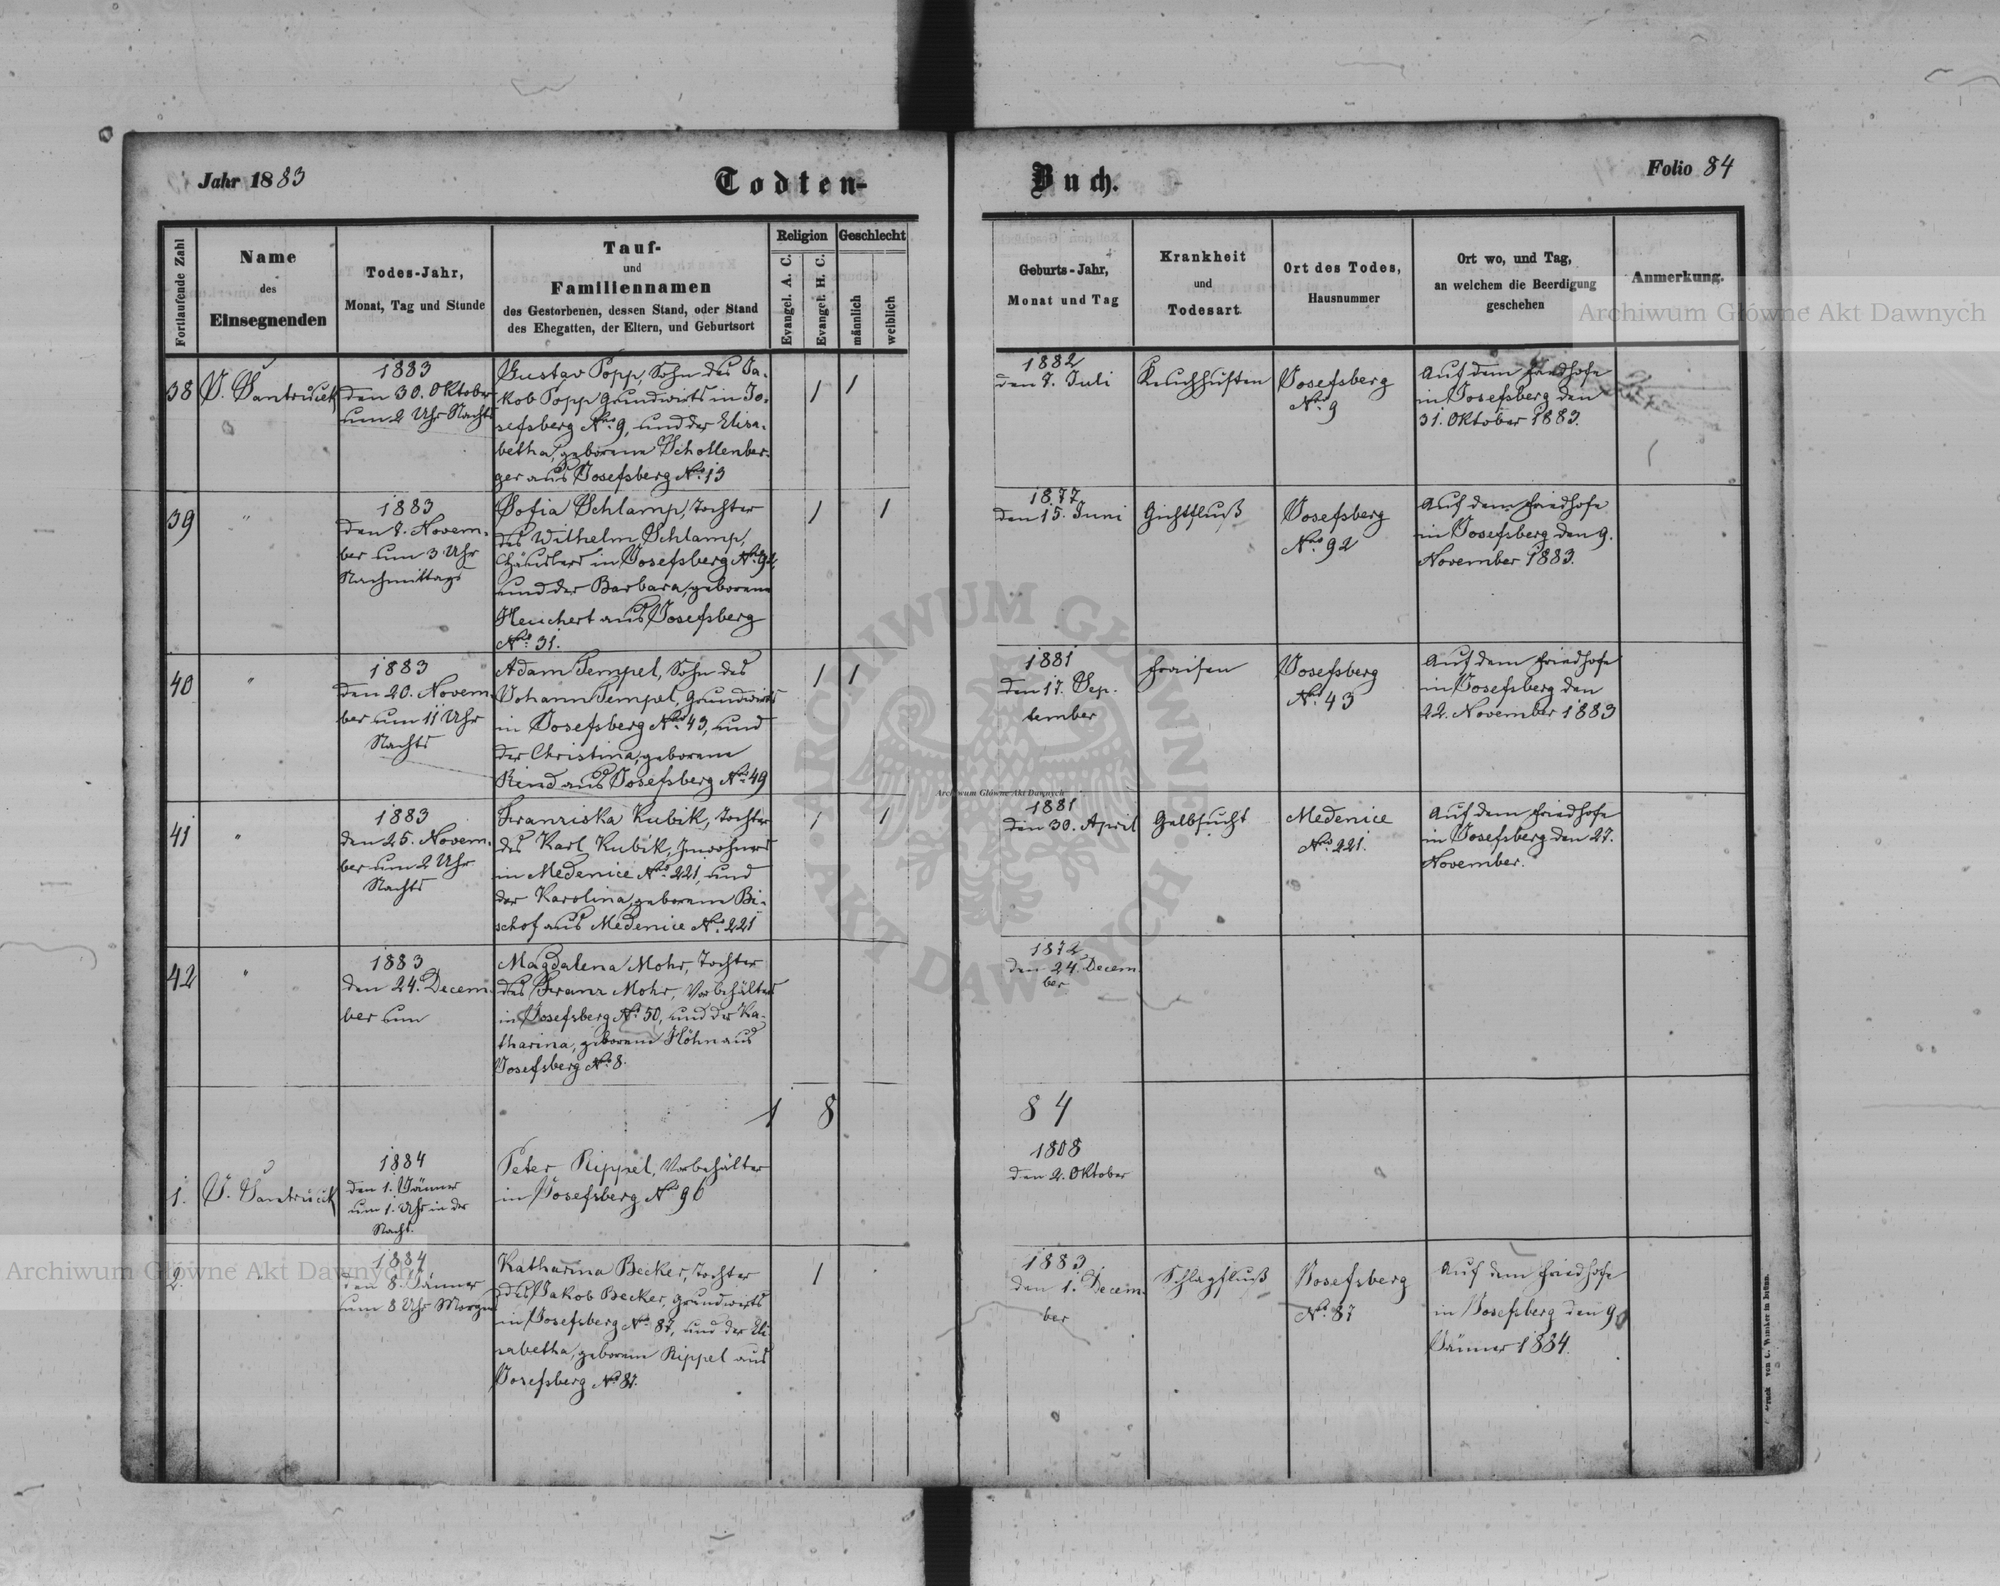 Jahr 1883
Todten-
Buch.
Folio 84
Fortlaufende Zahl
Name
des
Einsegnenden
Todes-Jahr,
Monat, Tag und Stunde
Tauf-
und
Familiennamen
des Gestorbenen, dessen Stand, oder Stand
des Ehegatten, der Eltern, und Geburtsort
Religion
Evangel. A. C.
Evangel. H. C.
Geschlecht
männlich
weiblich
Geburts-Jahr,
Monat und Tag
Krankheit
und
Todesart.
Ort des Todes,
Hausnummer
Ort wo, und Tag,
an welchem die Beerdigung
geschehen
Anmerkung.
38
1883
den 30. Oktober
um 2 Uhr Nachts
Gustav Popp, Sohn des Ja-
kob Popp Grundwirts in Jo-
sefsberg No. 9, und der Elisa-
betha, geborene Schollenber-
ger aus Josefsberg No. 13
1
1
1882
den 7. Juli
Keuchhusten
Josefsberg
No. 9
Auf dem Friedhofe
in Josefsberg den
31. Oktober 1883.
39
"
1883
den 7. Novem-
ber um 3 Uhr
Nachmittags
Sofia Schlamp, Tochter
des Wilhelm Schlamp,
Häuslers in Josefsberg No. 92,
und der Barbara, geborene
Heuchert aus Josefsberg
No. 31.
1
1
1877
den 15. Juni
Gichtfluß
Josefsberg
No. 92
Auf dem Friedhofe
in Josefsberg den 9.
November 1883.
40
"
1883
den 20. Novem-
ber um 11 Uhr
Nachts
Adam Tempel, Sohn des
Johann Tempel, Grundwirts
in Josefsberg No. 43, und
der Christina, geborene
Rind aus Josefsberg No. 49
1
1
1881
den 17. Sep-
tember
Fraisen
Josefsberg
No. 43
Auf dem Friedhofe
in Josefsberg den
22. November 1883
41
"
1883
den 25. Novem-
ber um 2 Uhr
Nachts
Franziska Kubik, Tochter
des Karl Kubik, Inwohners
in Medenice No. 221, und
der Karolina, geborene Bi-
schof aus Medenice No. 221
1
1
1881
den 30. April
Gelbsucht
Medenice
No. 221.
Auf dem Friedhofe
in Josefsberg den 27.
November.
42
"
1883
den 24. Decem-
ber um
Magdalena Mohr, Tochter
des Franz Mohr, Vorbehälters
in Josefsberg No. 50, und der Ka-
tharina, geborene Höhn aus
Josefsberg No. 8.
1872
den 24. Decem-
ber
1 8
8 4
1.
1884
den 1. Jänner
um 1. Uhr in der
Nacht.
Peter Rippel, Vorbehälter
in Josefsberg No 96
1808
den 2. Oktober
2.
"
1884
den 8. Jänner
um 8 Uhr Morgens
Katharina Becker, Tochter
des Jakob Becker, Grundwirts
in Josefsberg No. 87, und der Eli-
sabetha, geborene Rippel aus
Josefsberg No 87.
1
1883
den 1. Decem-
ber
Schlagfluß
Josefsberg
No. 87
Auf dem Friedhofe
in Josefsberg den 9
Jänner 1884.
Archiwum Główne Akt Dawnych
Archiwum Główne Akt Dawnych
Archiwum Główne Akt Dawnych
ARCHIWUM GŁÓWNE · AKT DAWNYCH ·